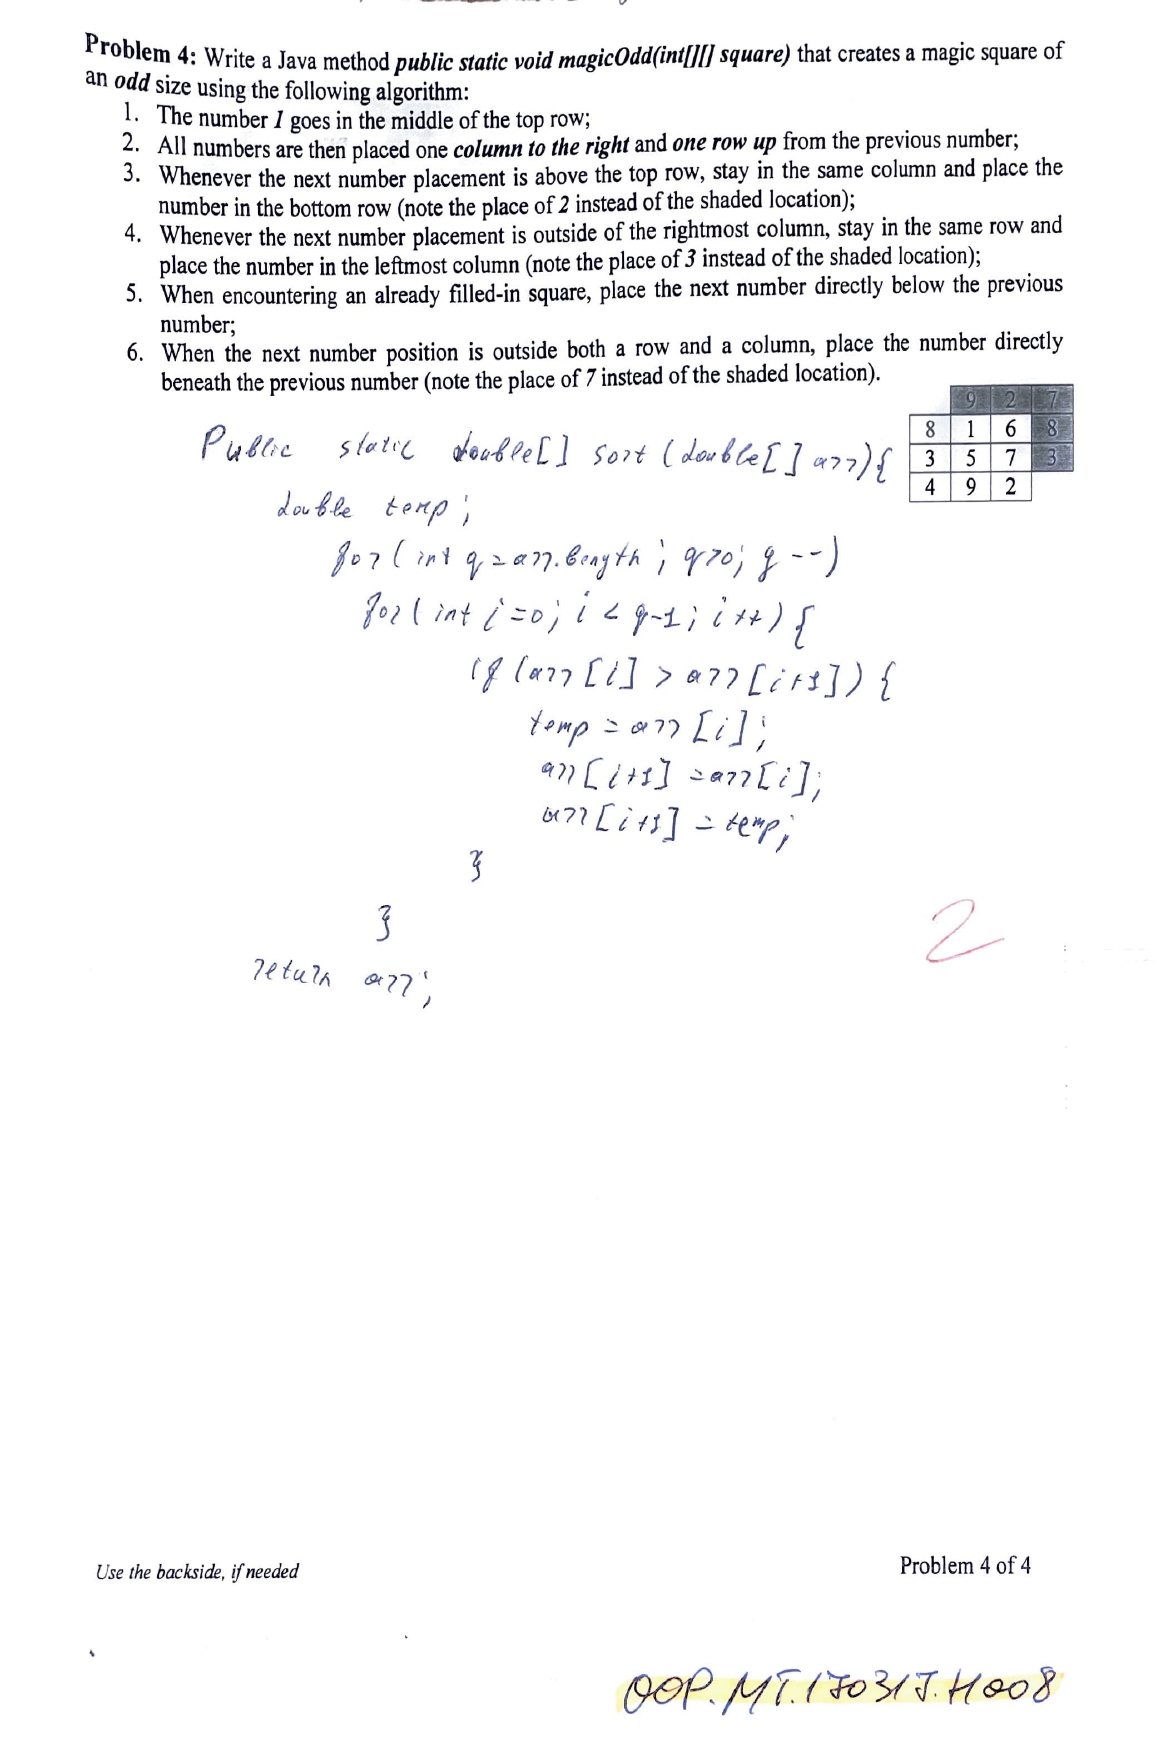 Problem 4: Write a Java method public static void magicOdd(int[][] square) that creates a magic square of
an odd size using the following algorithm:
1. The number 1 goes in the middle of the top row;
2. All numbers are then placed one column to the right and one row up from the previous number;
3. Whenever the next number placement is above the top row, stay in the same column and place the
number in the bottom row (note the place of 2 instead of the shaded location);
4. Whenever the next number placement is outside of the rightmost column, stay in the same row and
place the number in the leftmost column (note the place of 3 instead of the shaded location);
5. When encountering an already filled-in square, place the next number directly below the previous
number;
6. When the next number position is outside both a row and a column, place the number directly
beneath the previous number (note the place of 7 instead of the shaded location).
9 2 7
8 1 6 8
3 5 7 3
4 9 2
Public static double[] sort (double[] arr){
double temp;
for(int q = arr.length; q>0; q--)
for(int i=0; i < q-1; i++) {
if (arr[i] > arr[i+1]) {
temp = arr[i];
arr[i+1] = arr[i];
arr[i+1] = temp;
}
}
return arr;
2
Use the backside, if needed
Problem 4 of 4
OOP.MT.170317.H008